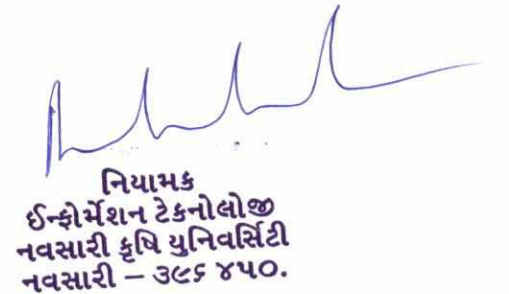 નિયામક
ઈન્ફોર્મેશન ટેકનોલોજી
નવસારી કૃષિ યુનિવર્સિટી
નવસારી – ૩૯૬ ૪૫૦.